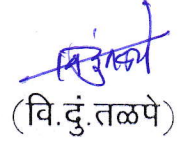 (वि.दुं.तळपे)